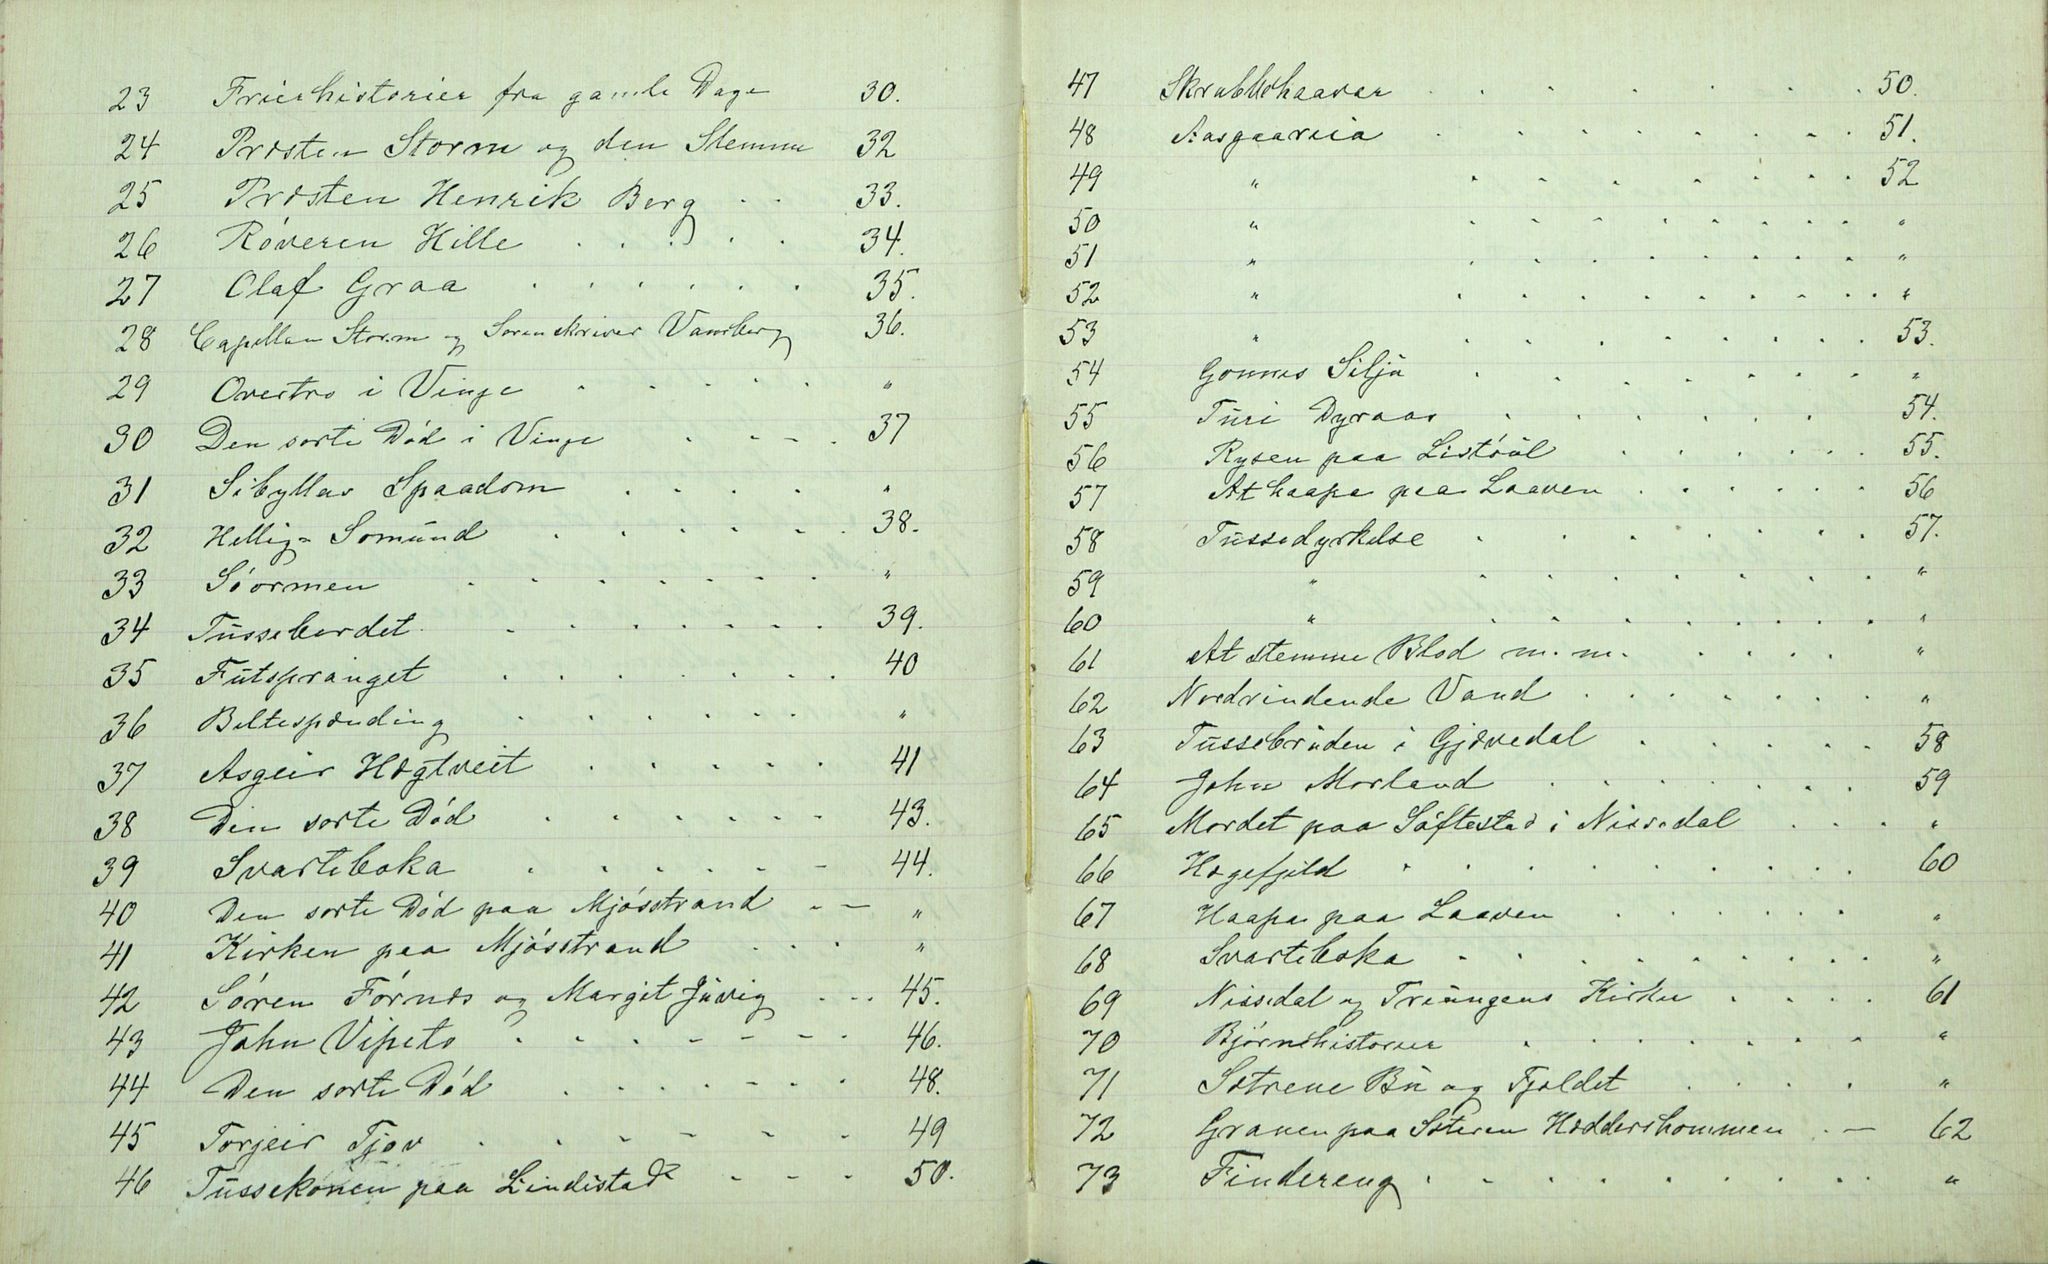 23 Frierhistorier fra gamle Dage 30.
24 Præsten Storm og den Stemme 32
25 Præsten Henrik Berg . . 33.
26 Röveren Hille . . . . . 34.
27 Olaf Graa . . . . . . 35.
28 Capellan Storm og Sorenskriver Vamberg 36.
29 Overtro i Vinje . . . . . "
30 Den sorte Död i Vinje . . . . 37
31 Sibyllas Spaadom . . . . "
32 Hellig-Somund . . . . . . 38.
33 Söormen . . . . . . . "
34 Tussebordet . . . . . . . 39.
35 Futspranget . . . . . . . 40
36 Beltespænding . . . . . . "
37 Asgeir Hægtveit . . . . . 41
38 Den sorte Död . . . . . . 43.
39 Svarteboka . . . . . . 44.
40 Den sorte Död paa Mjösstrand . - "
41 Kirken paa Mjösstrand . . . "
42 Sören Förnæs og Margit Juvig . . . 45.
43 John Vipeto . . . . . . . 46.
44 Den sorte Död . . . . . . 48.
45 Torjeir Tjov . . . . . . 49
46 Tussekonen paa Lindistad . . . 50.
47 Skrubbshaavar . . . . . . . 50.
48 Aasgaareia . . . . . . . . 51.
49 " . . . . . . . . 52
50 " . . . . . . . . "
51 " . . . . . . . . "
52 " . . . . . . . . "
53 " . . . . . . . 53.
54 Gonnes Silju . . . . . . . "
55 Turi Dyraas . . . . . . 54.
56 Rysen paa Listöul . . . . . . 55.
57 At haapa paa Laaven . . . . . . 56
58 Tussedyrkelse . . . . . . . 57.
59 " . . . . . . . "
60 " . . . . . . . "
61 At stemme Blod m. m. . . . . "
62 Nordrindende Vand . . . . . . . "
63 Tussebruden i Gjövedal . . . . . 58
64 John Morland . . . . . . . 59
65 Mordet paa Söftestad i Nissedal . . . "
66 Hægefjeld . . . . . . . . 60
67 Haapa paa Laaven . . . . . . "
68 Svarteboka . . . . . . . . "
69 Nissedal og Triungens Kirke . . . . 61
70 Björnehistorier . . . . . . . "
71 Sætrene Bu og Fjoldet . . . . "
72 Graven paa Sæteren Hæddershommen . - 62
73 Findereng . . . . . . . . "